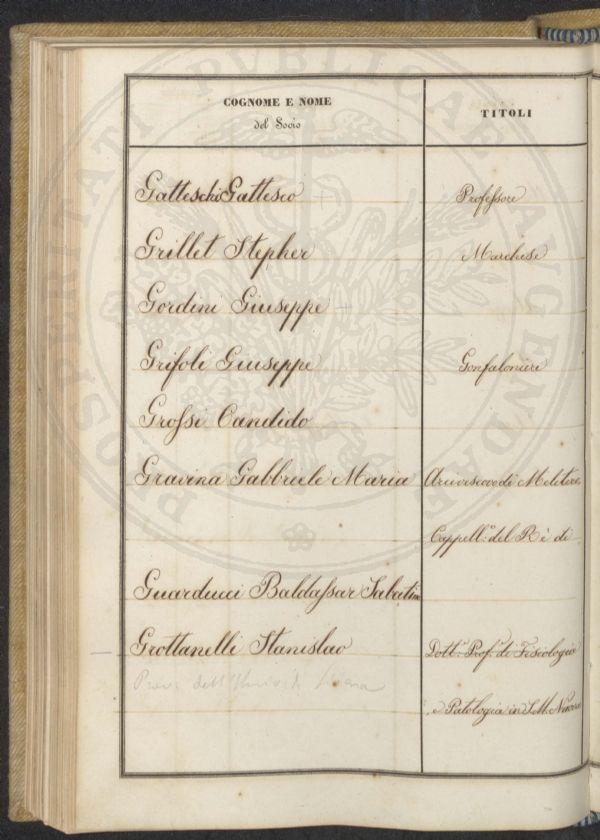 PROSPERITATI PUBLICAE AUGENDAE
COGNOME E NOME
del Socio
TITOLI
Gatteschi Gattesco Professore
Grillet Stepher Marchese
Gordini Giuseppe
Grifoli Giuseppe Gonfaloniere
Grossi Candido
Gravina Gabbriele Maria Arcivescovo di Melitene
Cappell.º del Rè di
Guarducci Baldassar Sabatin
Grottanelli Stanislao Dott.r Prof.r di Fisiologia
e Patologia in S.M. Nuova